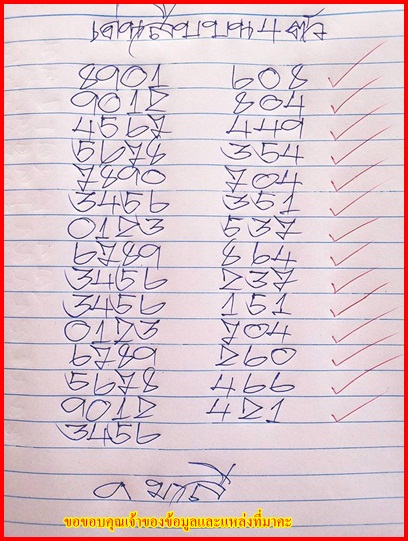 8901 608
9012 804
4567 449
5678 354
7890 704
3456 351
0123 537
6789 894
3456 237
3456 151
0123 704
6789 260
5678 466
9012 421
3456
ขอขอบคุณเจ้าของข้อมูลและแหล่งที่มาคะ